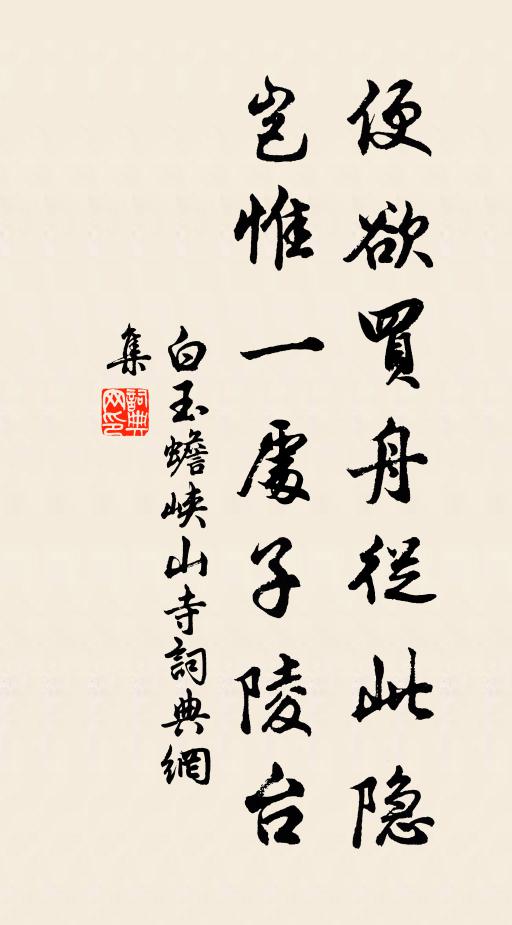 便欲買舟從此隐
岂惟一處子陵台
白玉蟾峡山寺詞典網
集
詞典網印